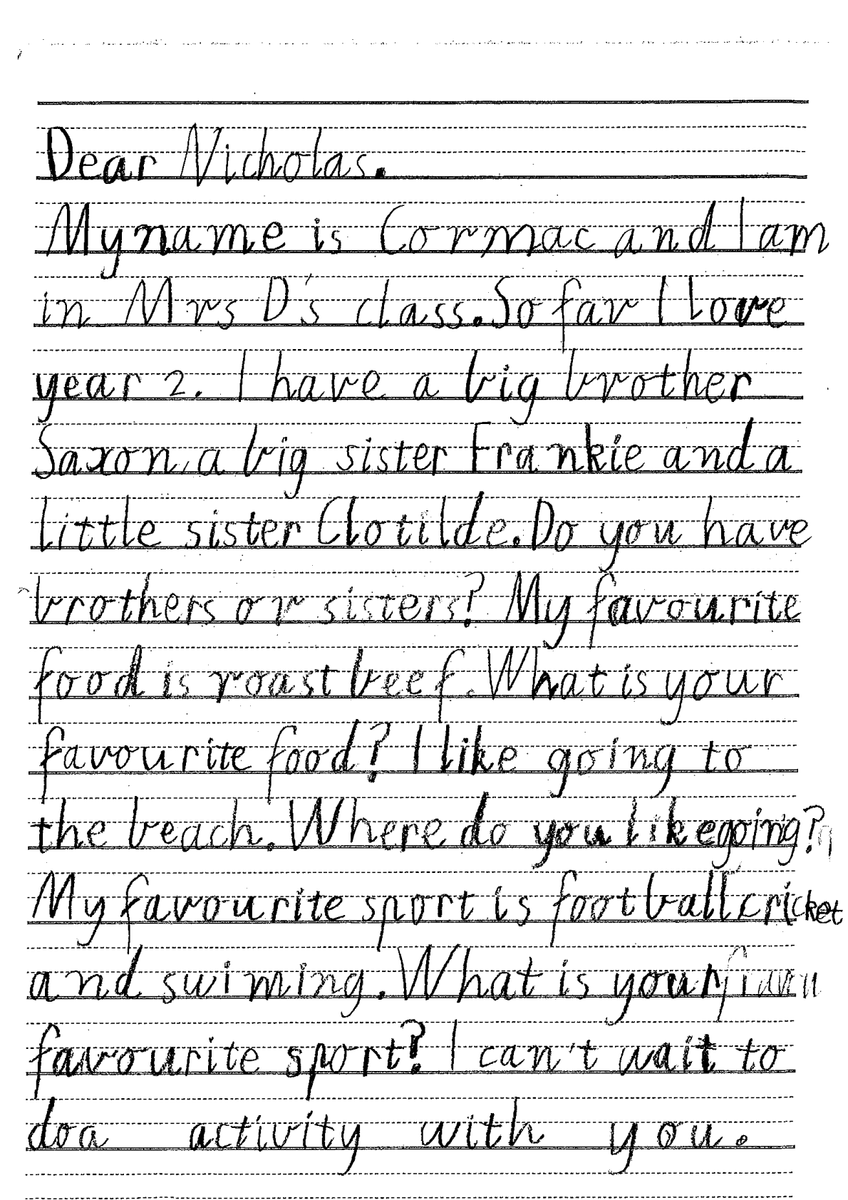 Dear Nicholas.
My name is Cormac and I am
in Mrs D's class. So far I love
year 2. I have a big brother
Saxon, a big sister Frankie and a
little sister Clotilde. Do you have
brothers or sisters? My favourite
food is roast beef. What is your
favourite food? I like going to
the beach. Where do you like going?
My favourite sport is football cricket
and swiming. What is your
favourite sport? I can't wait to
do a activity with you.